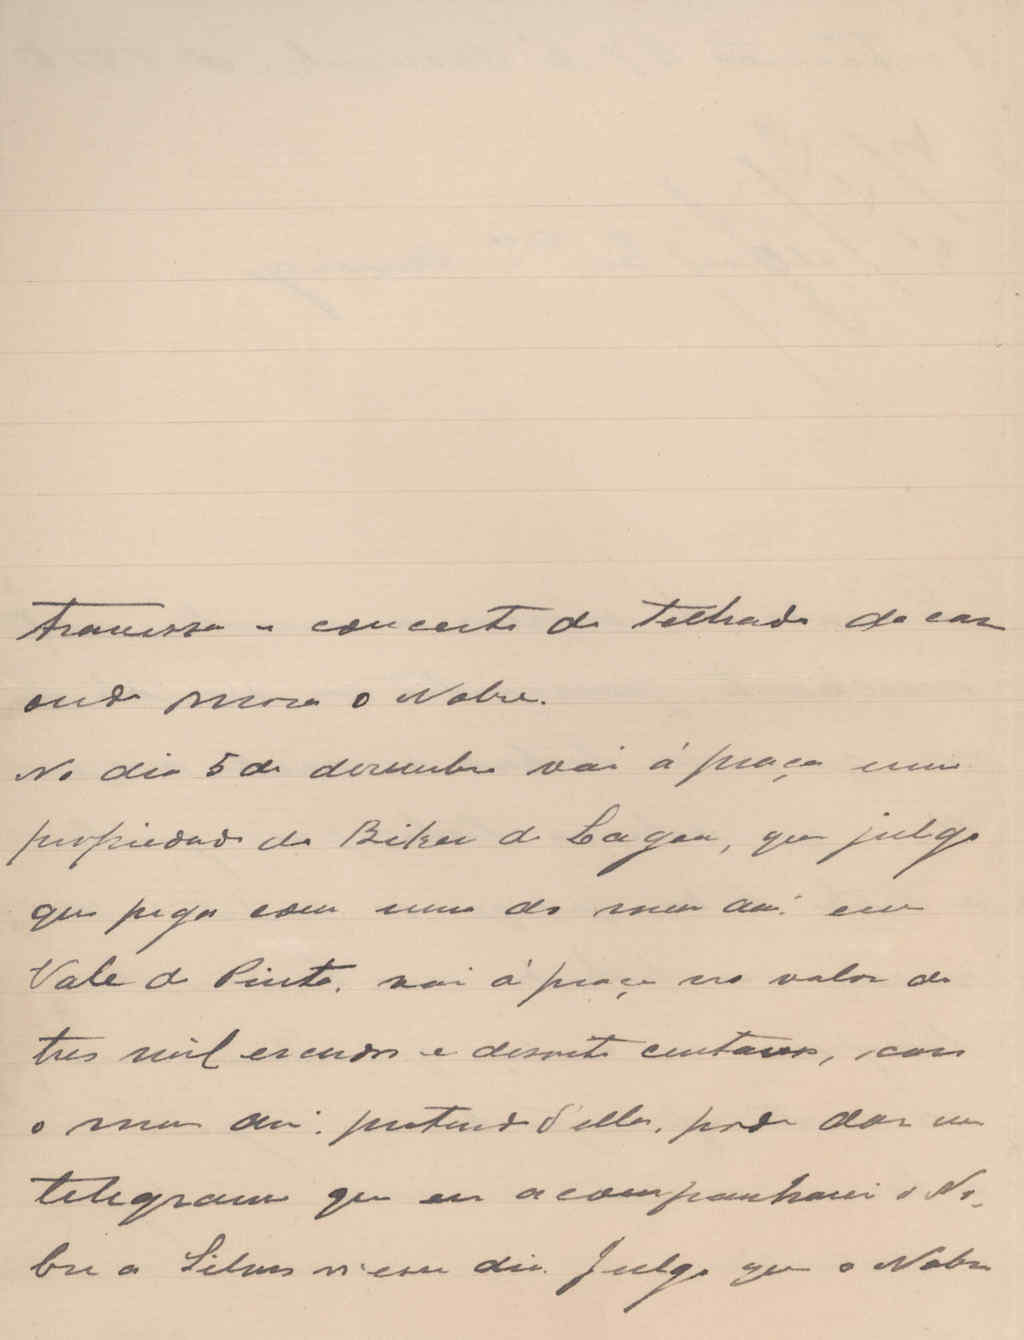 Travessa e concerto do telhado da casa
onde mora o Nobre.
No dia 5 de dezembro vai á praça uma
propriedade do Biker de Lagoa, que julgo
que pega com uma do meu
Vale de Pinto. vai á praça no valor de
tres mil escudos e desoito centavos, caso
o meu pretenda d'ella. pode dar um
telegrama que eu acompanharei o No-
bre a Silves n'esse dia. Julgo que o Nobre